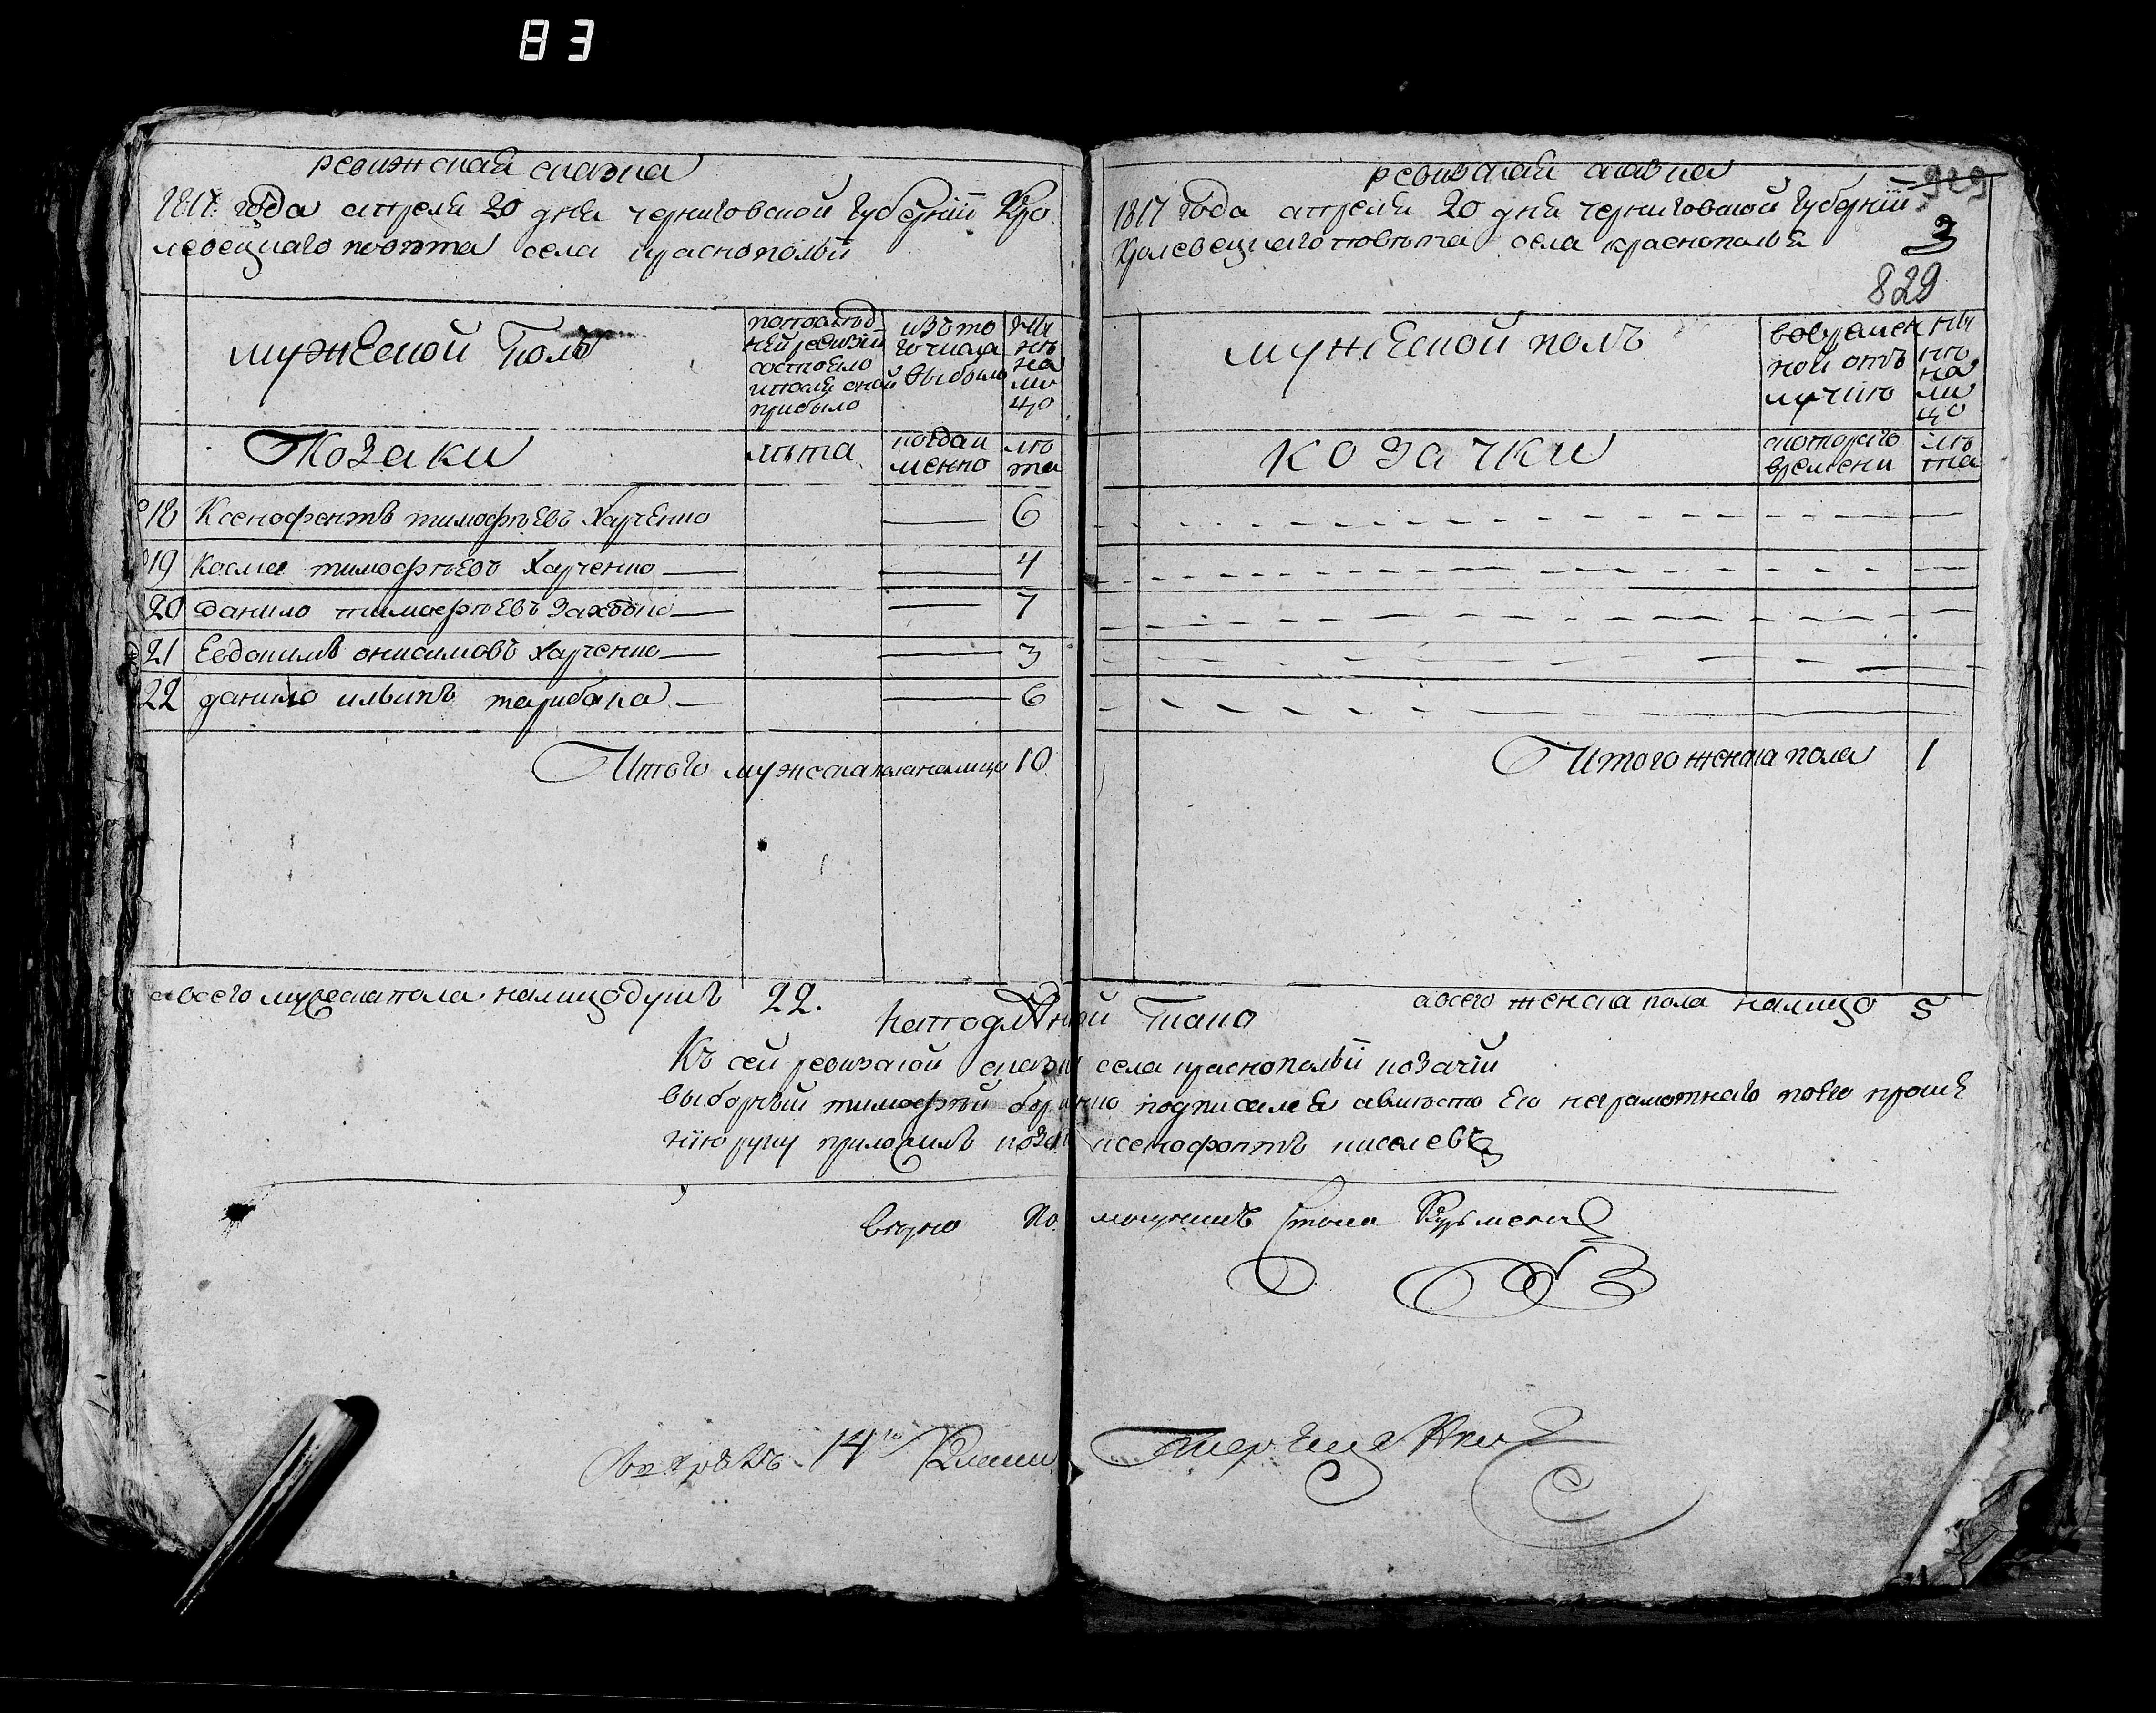 83
ревижская сказка
1817: года апреля 20 дня черниговской губернiи Кро
левецкаго повѣта села краснополья
мужеской Полъ
попослѣд
ней ревизiи
состояло
ипосля оной
прибыло
изъ то
го числа
выбыло
ны
нѣ
на
ли
цо
Козаки
лѣта
когда и
менно
лѣ
та
18 Ксенофонтъ тимофѣевъ Харченко — 6
19 Косма тимофѣевъ Харченко — 4
20 данило тимофѣевъ — 7
21 Евдокимъ онисимовъ Харченко — 3
22 данило ильинъ — 6
Итого мужеска пола налицо 10
авсего мужеска пола налицо душъ 22.
ревизская сказка
929
1817 года апреля 20 дня черниговской губернiи
Кролевецкаго повѣта села краснополья
3
829
мужеской полъ
вовремен
ной отъ
лучкѣ
ны
нѣ
на
ли
цо
козачки
скотораго
времени
лѣ
та
Итого женска пола 1
авсего женска пола налицо 5
Наподлѣнной тако
Къ сей ревизской сказки села краснопольи козачiй
выборный тимофѣй подписался авмѣсто его неграмотнаго поего проше
нiю руку приложилъ козакъ ксенофонтъ киселевъ
Вѣрно По стола
14 класи